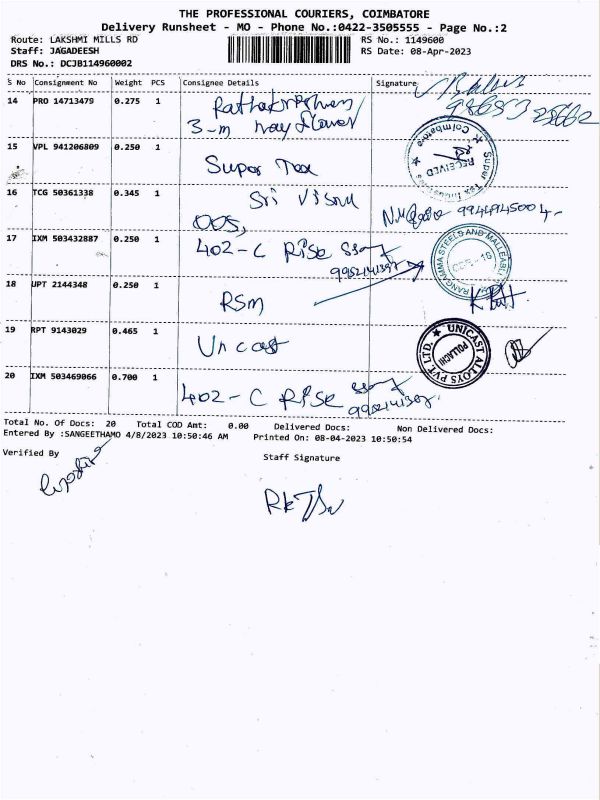 THE PROFESSIONAL COURIERS, COIMBATORE
Delivery Runsheet - MO - Phone No.:0422-3505555 - Page No.:2
Route: LAKSHMI MILLS RD RS No.: 1149600
Staff: JAGADEESH RS Date: 08-Apr-2023
DRS No.: DCJB114960002
S No Consignment No Weight PCS Consignee Details Signature
14 PRO 14713479 0.275 1
3-m May flower
15 VPL 941206809 0.250 1 Super Tex
RECEIVED
Super Tex Industries
Coimbatore
16 TCG 50361338 0.345 1 Sri Visnu
9944945004
17 IXM 503432887 0.250 1 402-C Rise
9952141397
RANGAMMA STEELS AND MALLEABLES
18 UPT 2144348 0.250 1 RSM
19 RPT 9143029 0.465 1 Unicast
UNICAST ALLOYS PVT LTD.
POLLACHI
20 IXM 503469066 0.700 1 402-C Rise
Total No. Of Docs: 20 Total COD Amt: 0.00 Delivered Docs: Non Delivered Docs:
Entered By :SANGEETHAMO 4/8/2023 10:50:46 AM Printed On: 08-04-2023 10:50:54
Verified By Staff Signature